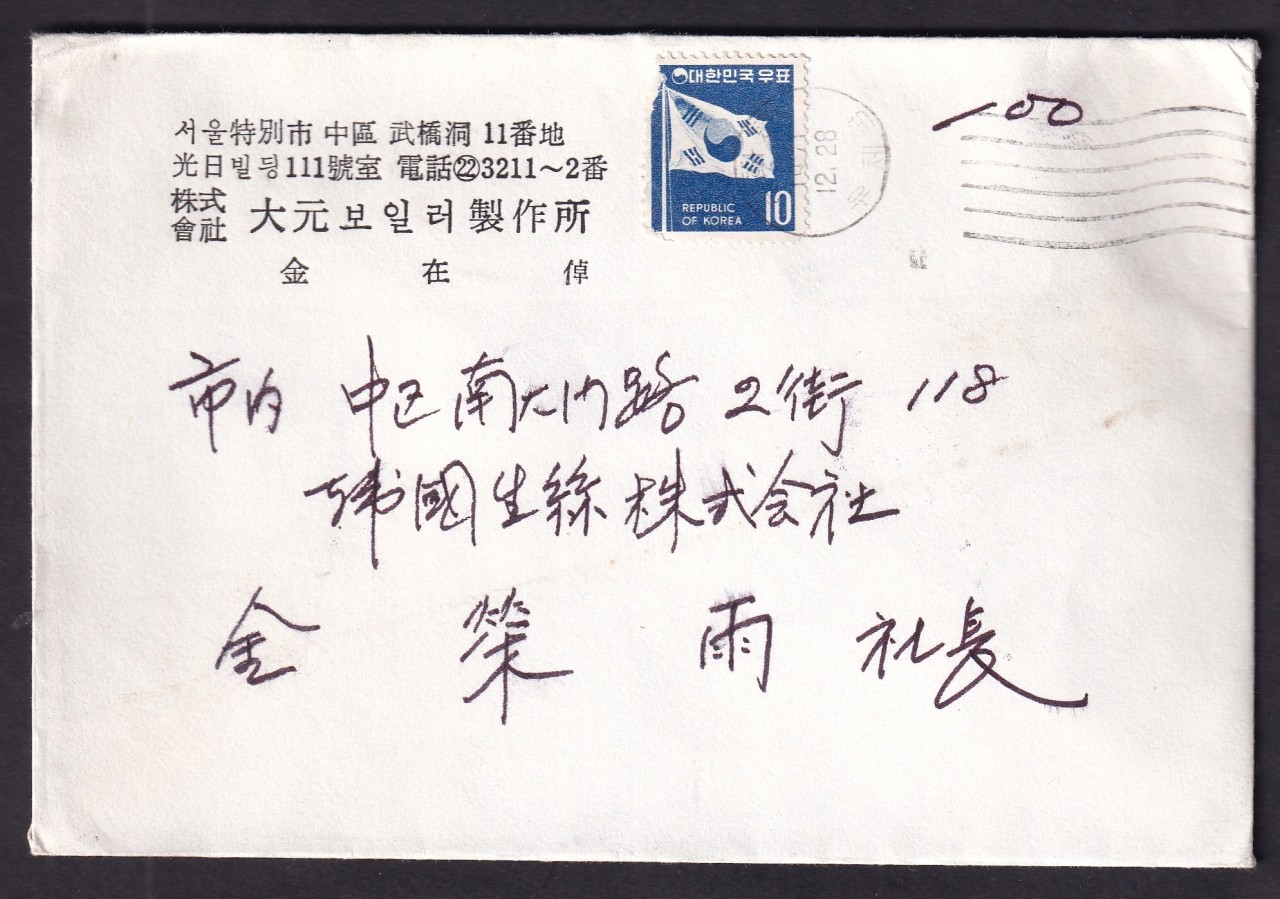 서울特別市 中區 武橋洞 11番地
光日빌딩111號室 電話㉒3211～2番
株式會社 大元보일러製作所
金 在 倬
대한민국우표
REPUBLIC
OF KOREA
10
12.28
100
市内 中区 南大门路 2街 118
韓國生絲 株式会社
金 榮 雨 社長